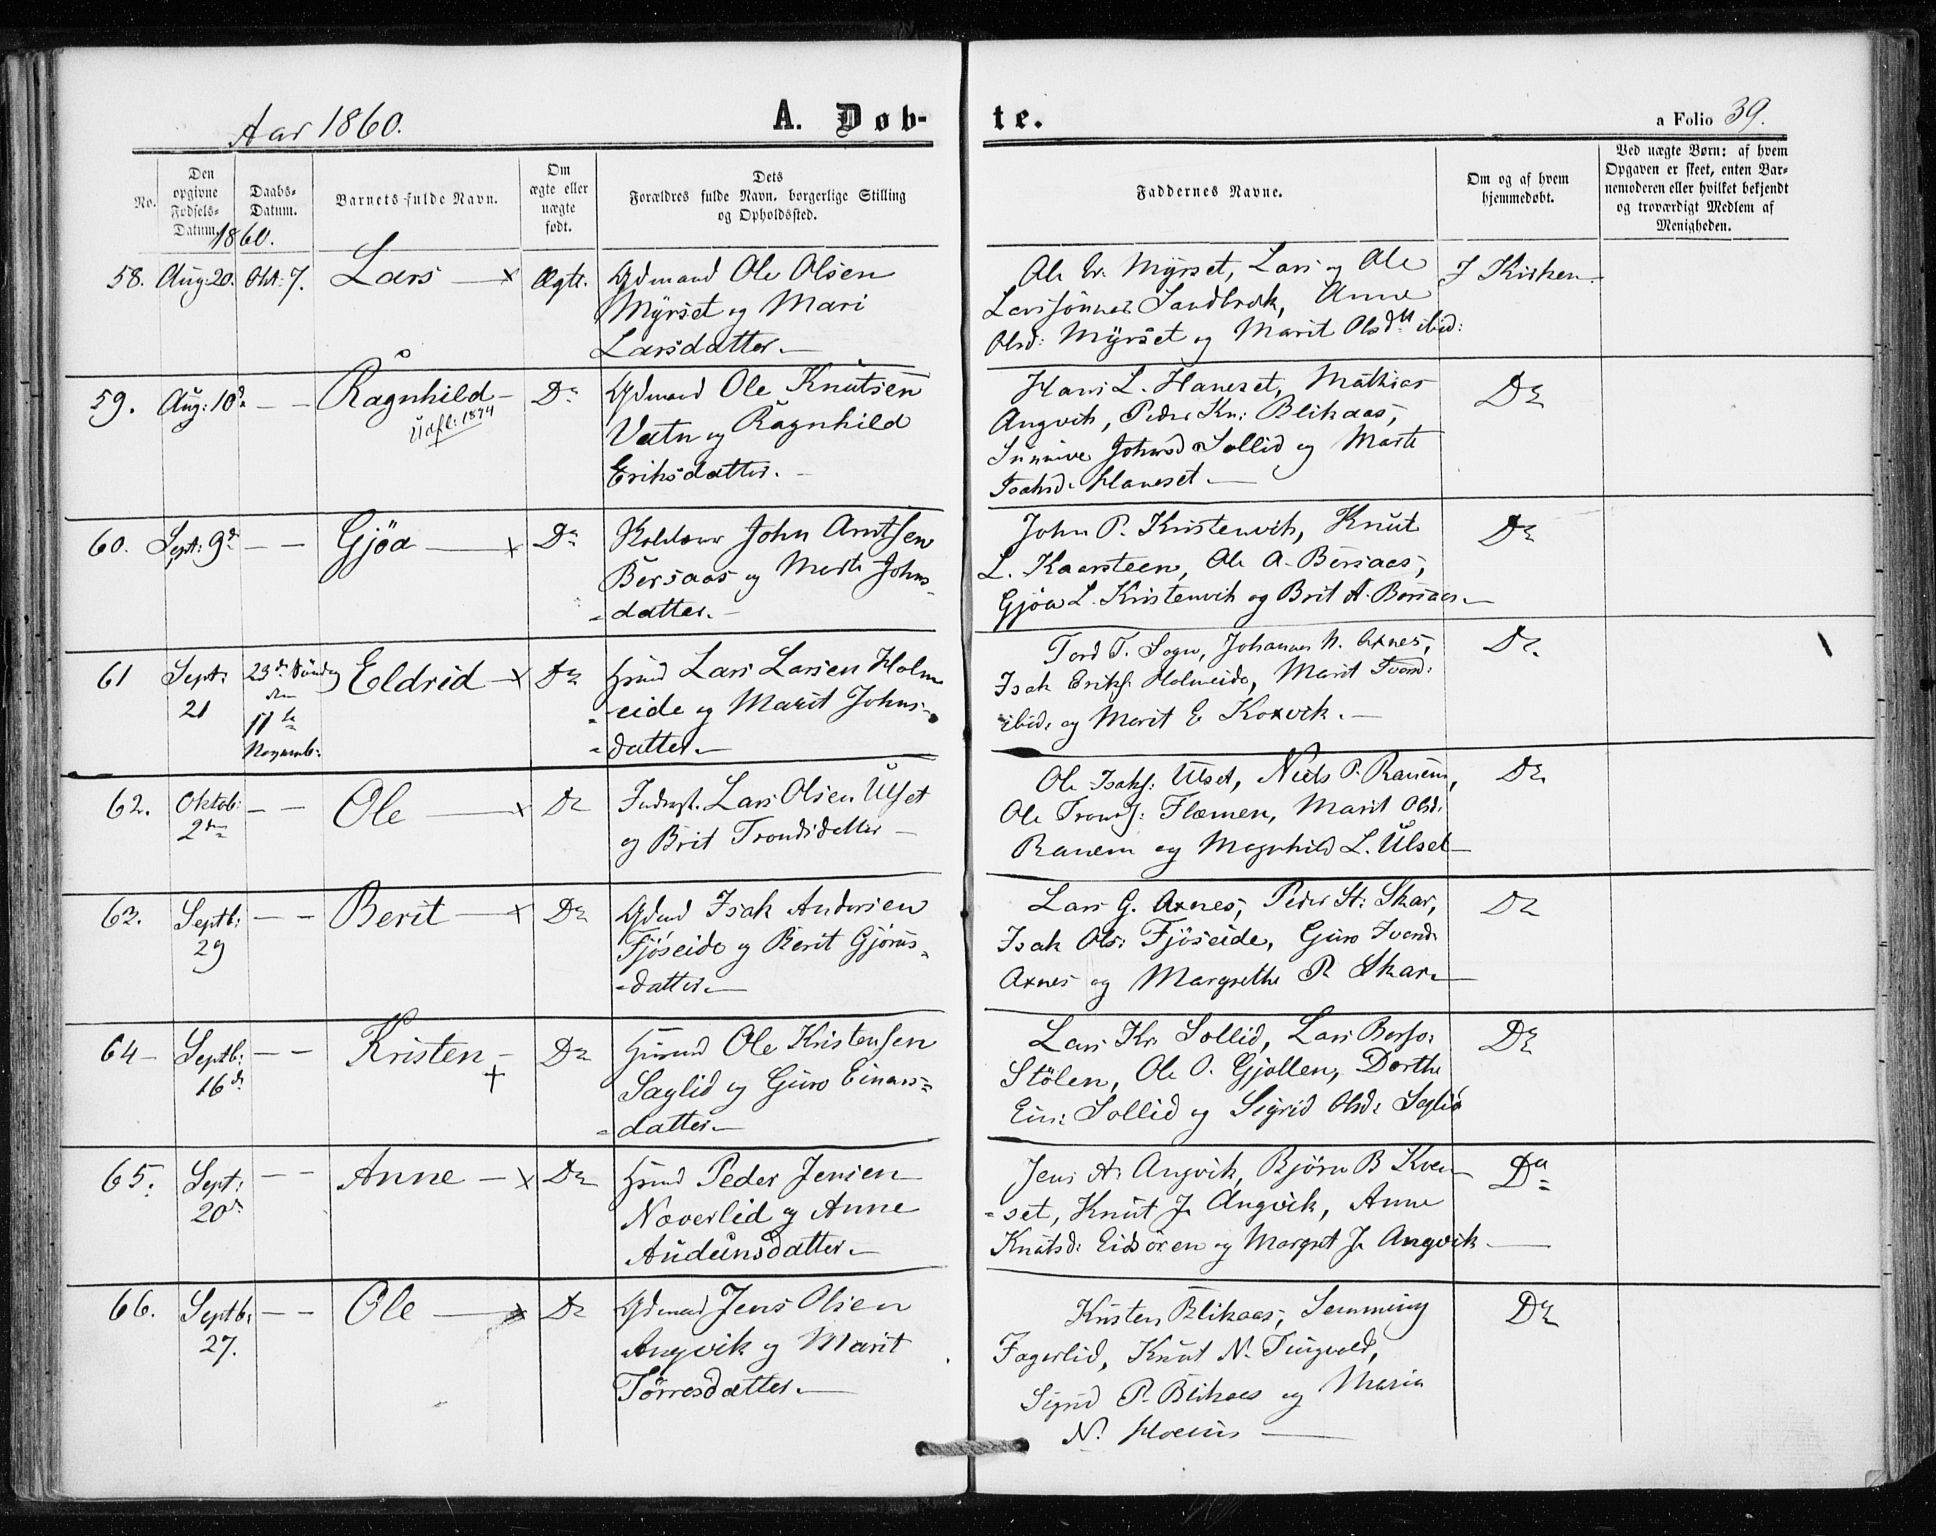 Aar 1860.
A. Døb-
te.
a Folio 39.
No.
Den
opgivne
Fødsels-
Datum.
Daabs-
Datum.
Barnets fulde Navn.
Om
ægte eller
uægte
født.
Dets
Forældres fulde Navn, borgerlige Stilling
og Opholdssted.
Faddernes Navne.
Om og af hvem
hjemmedøbt.
Ved uægte Børn; af hvem
Opgaven er skeet, enten Bar-
nemoderen eller hvilket bekjendt
og troværdigt Medlem af
Menigheden.
1860.
58. Aug: 20. Okt: 7. Lars — x Ægte.
Gdmand Ole Olsen
Myrset og Mari
Larsdatter.—
Ole Er. Myrset, Lars og Ole
Larssønner Sandbæk, Anne
Olsd: Myrset og Marit Olsdtt ibid:
I Kirken.
59. Aug: 10de — — Ragnhild — Do
Udfl: 1874
Gdmand Ole Knutsen
Vatn og Ragnhild
Eriksdatter. —
Hans L. Haneset, Mathias
Angvik, Peder Kn: Blikaas,
Sunnive Johnsd Sollid og Marte
Isaksd: Haneset.—
Do
60. Sept: 9de — — Gjøa — x Do
John Arntsen
Bersaas og Marte Johns-
-datter.—
John P. Kristenvik, Knut
L. Kaarsteen, Ole A. Bersaas,
Gjøa L. Kristenvik og Brit A. Bersaas—
Do
61 Sept: 21
23de Søndag
den
11te
Novemb:
Eldrid — x Do
Hsmd Lars Larsen Holm-
-eide og Marit Johns-
-datter.—
Tord T. Sogn, Johannes N. Axnes,
Isak Eriks. Holmeide, Marit
ibid: og Marit E Korsvik.—
Do.
62. Oktob: 2den — — Ole — x Do
Inderst. Lars Olsen Ulset
og Brit Trondsdatter —
Ole Isaks: Ulset, Niels P. Ranem,
Ole Tronds: Flemmen, Marit Olsd:
Ranem og Magnhild L. Ulset—
Do
63. Septb: 29 — — Berit — x Do
Gdmd Isak Andersen
Fjøseide og Berit Gjørus-
-datter.—
Lars G. Axnes, Peder St: Skar,
Isak Ols: Fjøseide, Guro Iversd:
Axnes og Margrethe P. Skar.—
Do
64 — Septb: 16de — — Kristen — + Do
Husmd Ole Kristensen
Saglid og Guro Einars-
-datter.—
Lars Kr. Sollid, Lars
Stølen, Ole O. Gjøllen, Dorthe
Ein: Sollid og Sigrid Olsd: Saglid
Do
65. Sept: 20de — — Anne — x Do
Hsmd Peder Jensen
Næverlid og Anne
Audunsdatter.—
Jens A. Angvik, Bjørn B Kven-
-set, Knut J. Angvik, Anne
Knutsd: Eidsøren og Margret J. Angvik —
Do
66. Septb: 27. — — Ole — x Do
Gdmand Jens Olsen
Angvik og Marit
Tørresdatter.—
Kristen Blikaas, Semming
Fagerlid, Knut N. Tingvold,
Sigrid P. Blikaas og Maria
N. —
Do